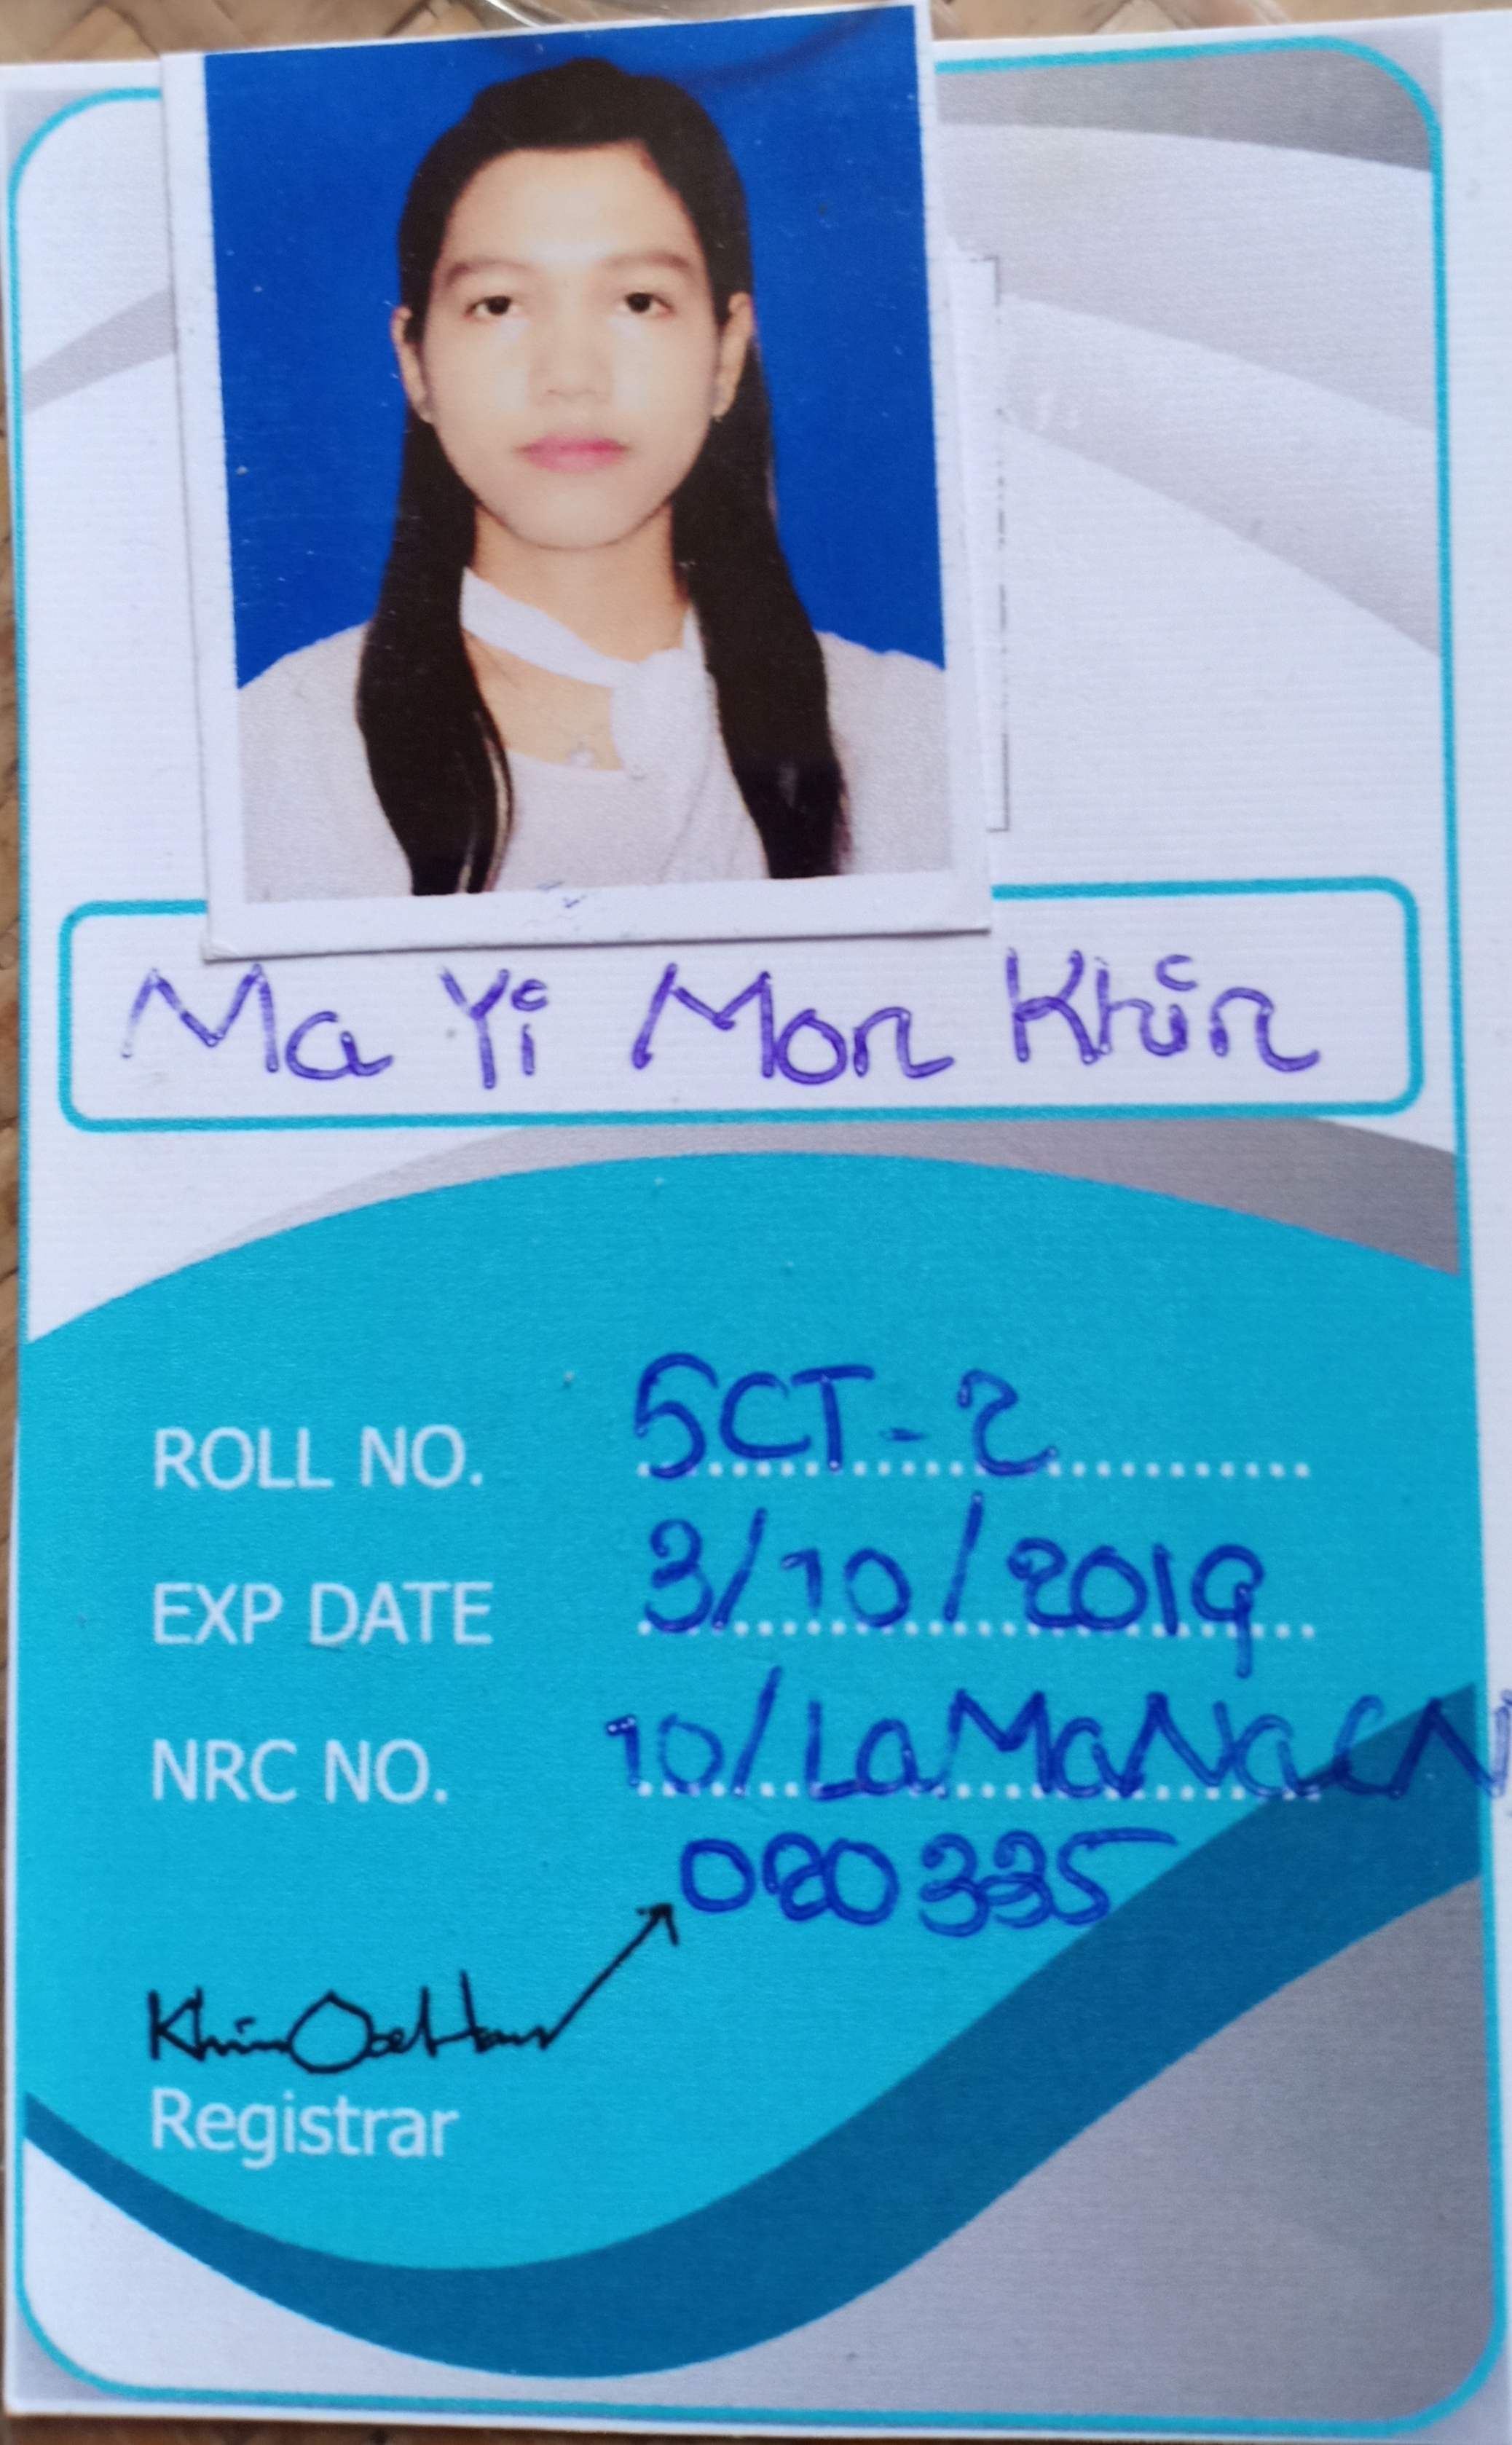 Ma Yi Mon Khin
ROLL NO. 5CT-2
EXP DATE 3/10/2019
NRC NO. 10/LaMaNaCN
020335
Registrar